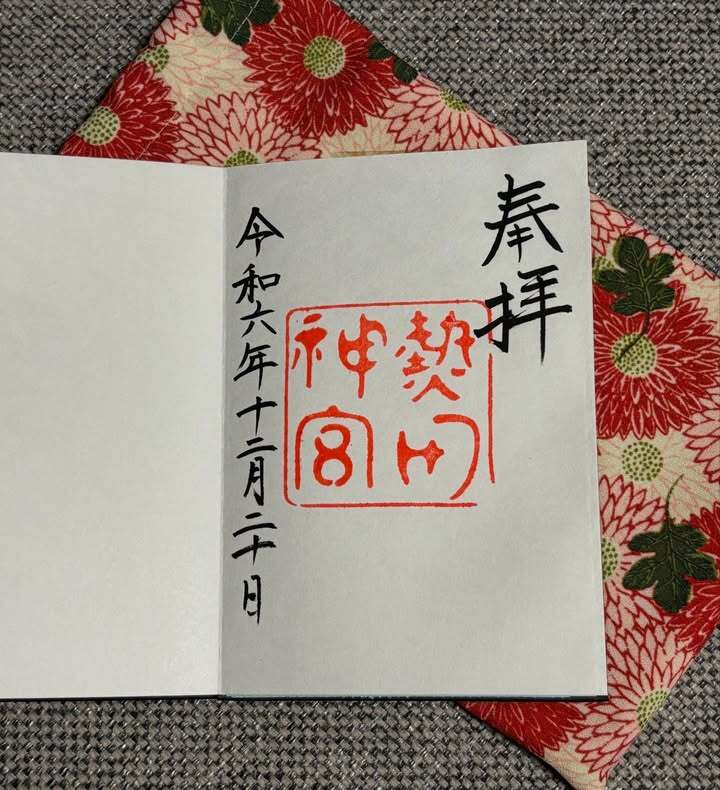 奉拝
熱田
神宮
令和六年十二月二十日